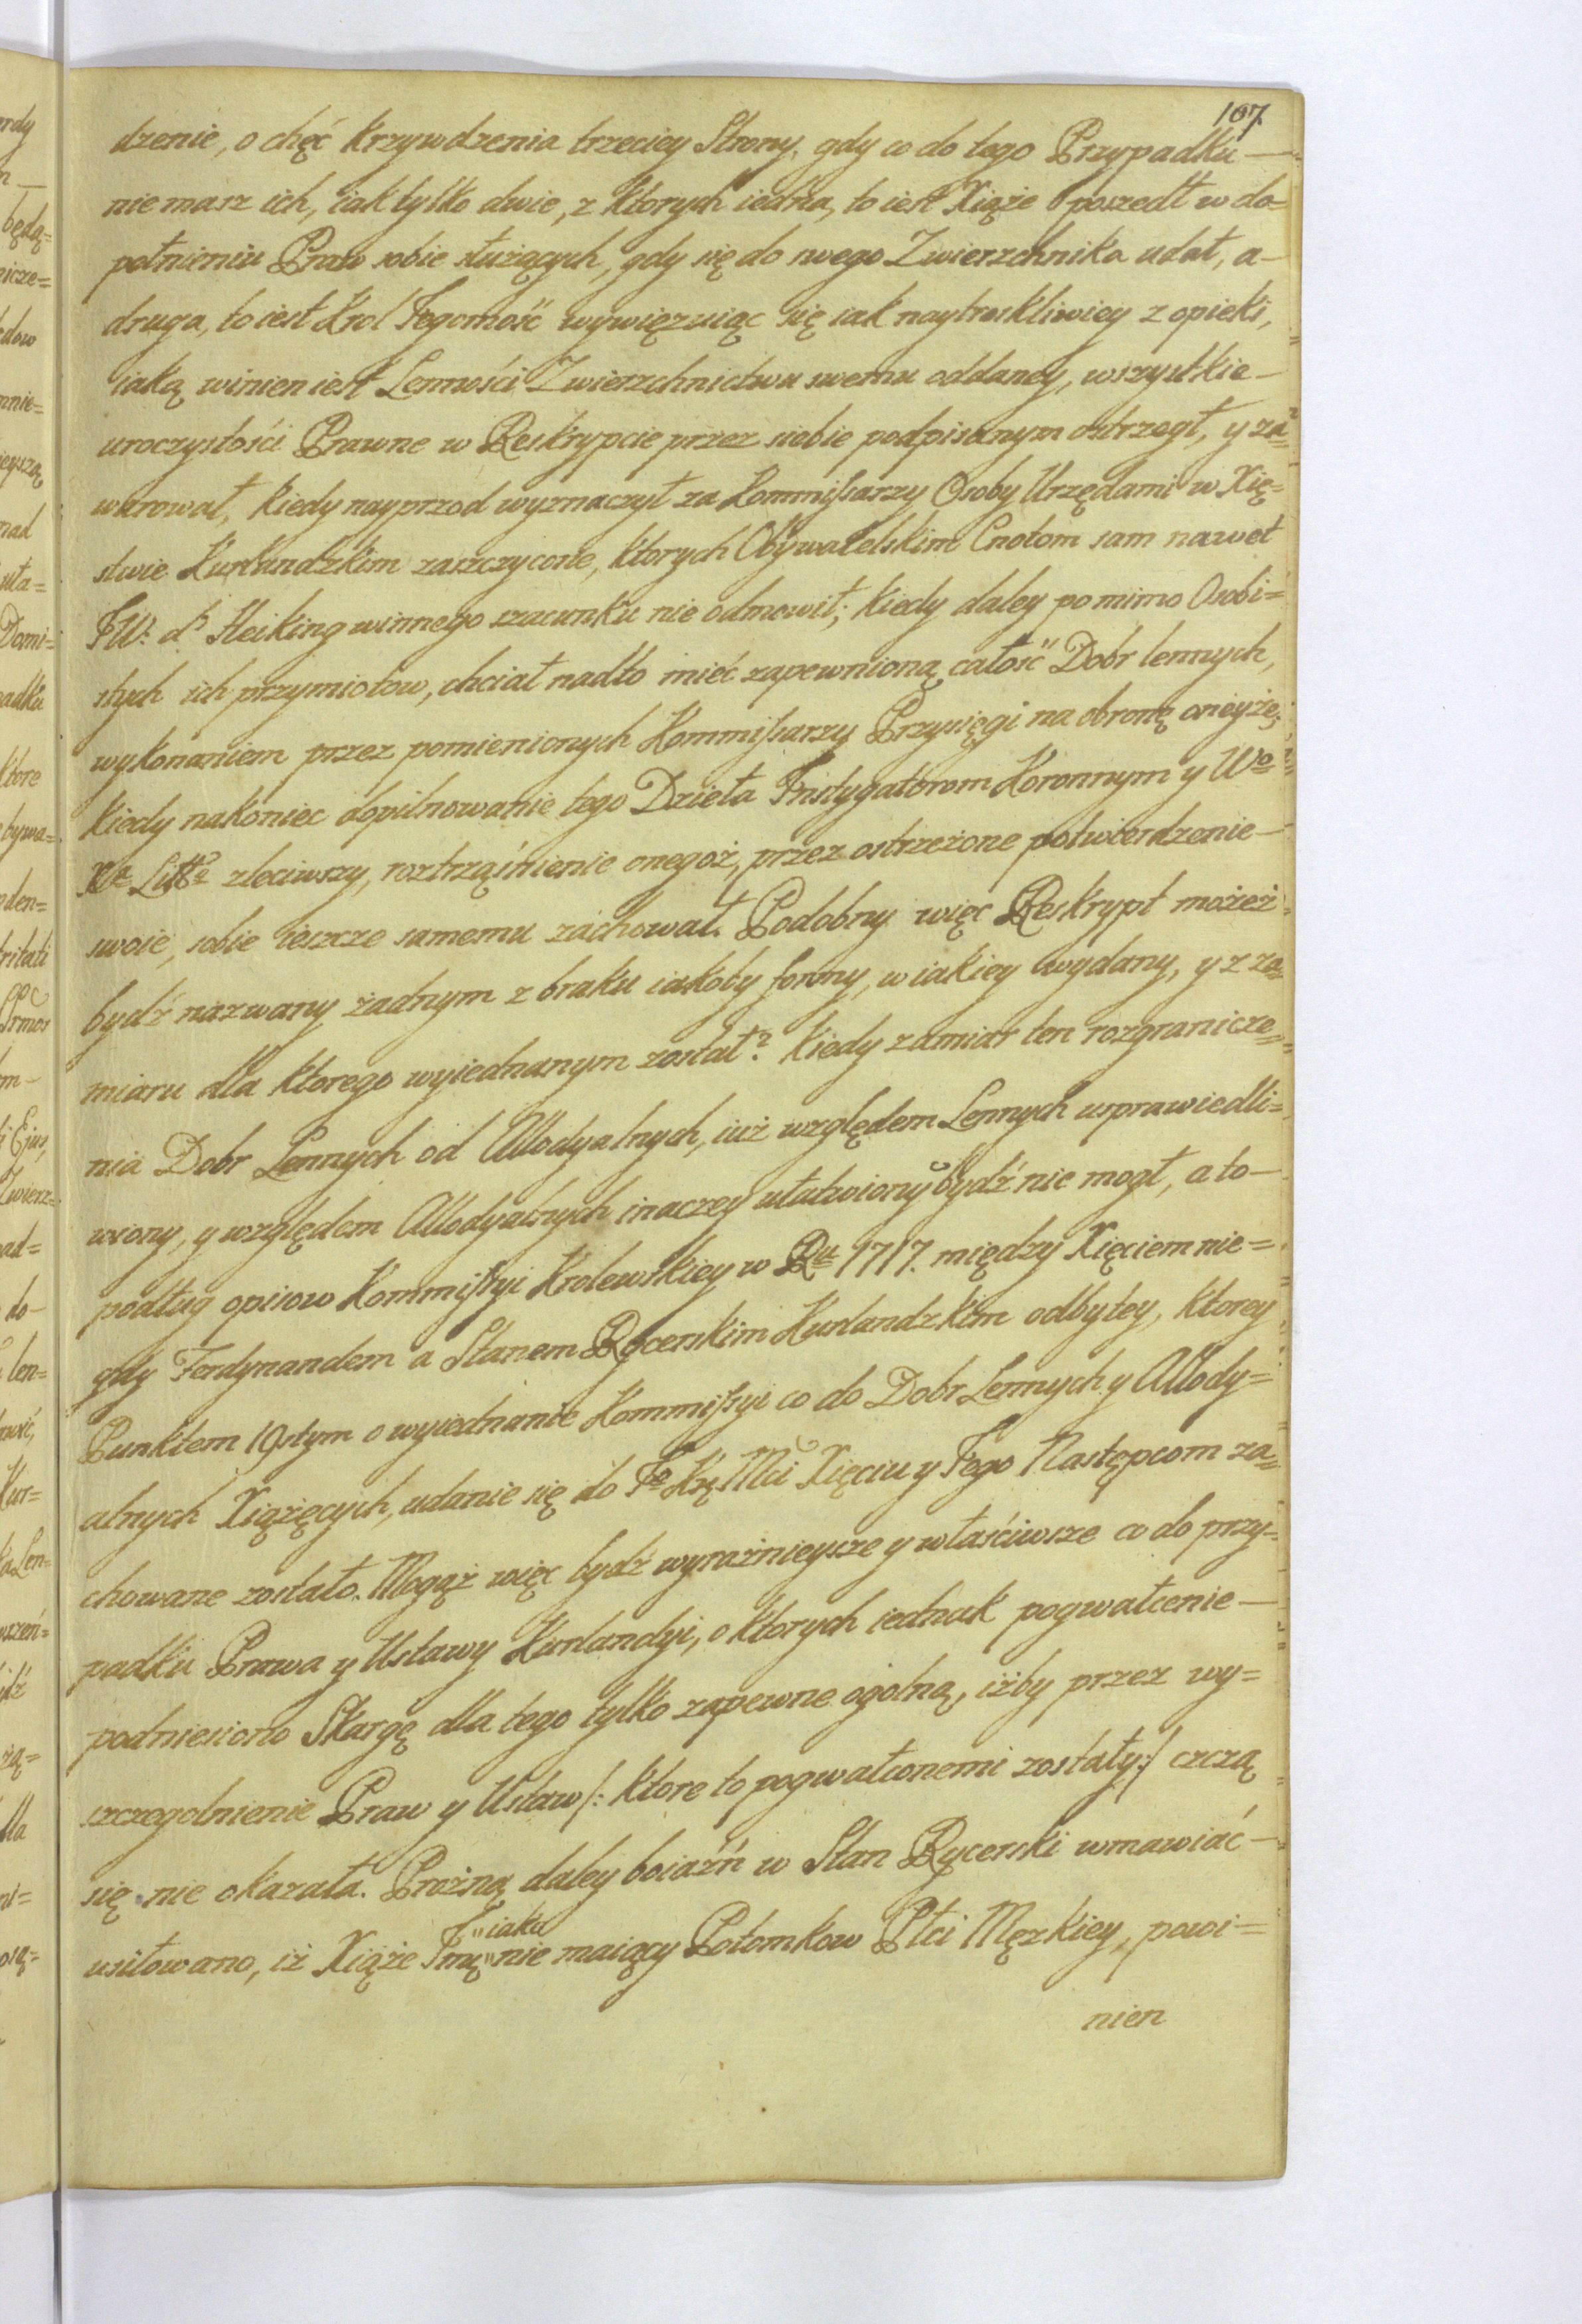 107
dzenie, o chęć krzywdzenia trzeciey Strony, gdy co do tego Przypadku —
nie masz ich, iak tylko dwie, z ktorych iedna, to iest Xiąże poszedł w do=
pełnieniu Praw sobie służących, gdy się do swego Zwierzchnika udał, a —
druga, to iest Krol Jegomość wywięzuiąc się iak naytroskliwiey z opieki,
iaką winien iest Lenności Zwierzchnictwu swemu oddaney, wszystkie —
uroczystości Prawne w Reskrypcie przez siebie podpisanym ostrzegł, y za=
warował, kiedy nayprzod wyznaczył za Kommissarzy Osoby Urzędami w Xię=
stwie Kurlandzkim zaszczycone, ktorych Obywatelskim Cnotom sam nawet
JW: d'Heiking winnego szacunku nie odmowił; kiedy daley pomimo Osobi=
stych ich przymiotow, chciał nadto mieć zapewnioną całość Dobr lennych,
wykonaniem przez pomienionych Kommissarzy Przysięgi na obronę oneyże;
kiedy nakoniec dopilnowanie tego Dzieła Instygatorom Koronnym y Wo
Xa Litto zleciwszy, roztrząśnienie onegoż, przez ostrzeżone potwierdzenie —
swoie, sobie ieszcze samemu zachował. Podobny więc Reskrypt możeż
bydź nazwany żadnym z braku iakoby formy, w iakiey wydany, y z za=
miaru dla ktorego wyiednanym został? kiedy zamiar ten rozgranicze=
nia Dobr Lennych od Allodyalnych, iuż względem Lennych usprawiedli=
wiony, y względem Allodyalnych inaczey ułatwiony bydź nie mogł, a to —
podług opisow Kommissyi Krolewskiey w Ru 1717. między Xięciem nie=
gdy Ferdynandem a Stanem Rycerskim Kurlandzkim odbytey, ktorey
Punktem 19stym o wyiednanie Kommissyi co do Dobr Lennych y Allody=
alnych Xiążęcych, udanie się do Jo Krę Mci Xięciu y Jego Następcom za=
chowane zostało. Mogąż więc bydź wyraźnieysze y właściwsze co do przy=
padku Prawa y Ustawy Kurlandyi, o ktorych iednak pogwałcenie —
podniesiono Skargę dla tego tylko zapewne ogolną, iżby przez wy=
szczegolnienie Praw y Ustaw /: ktore to pogwałconemi zostały :/ czczą
się nie okazała. Prożną daley boiaźń w Stan Rycerski wmawiać —
usiłowano, iż Xiąże Jmę "iako" nie maiący Potomkow Płci Męzkiey, powi=
nien